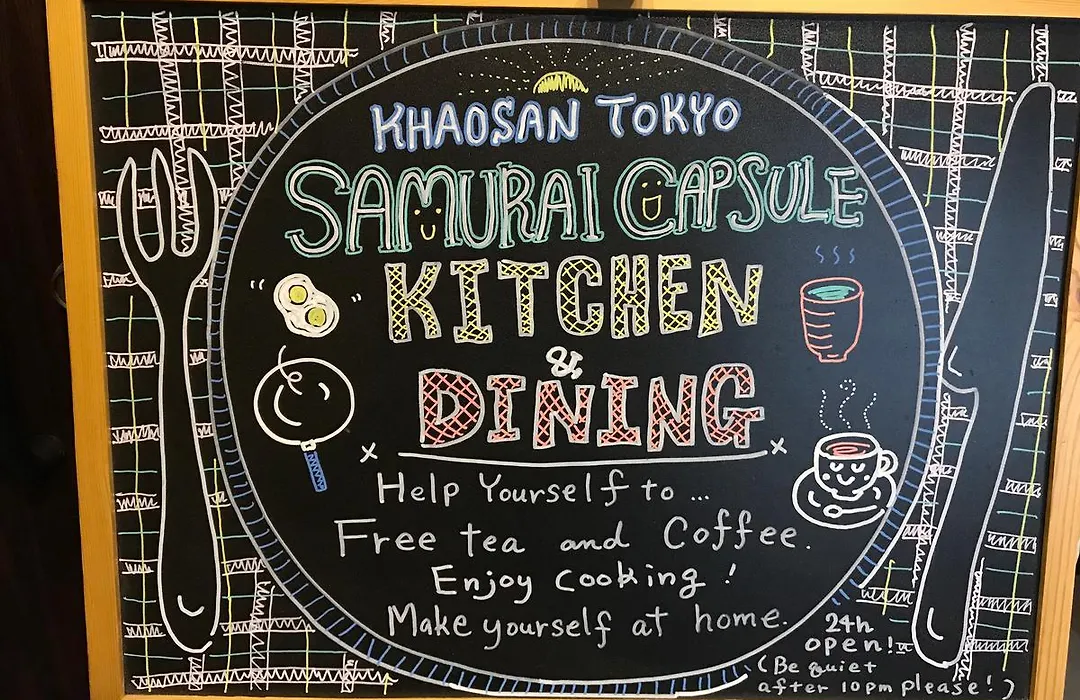 KHAOSAN TOKYO
SAMURAI CAPSULE
KITCHEN
&
DINING
Help Yourself to ...
Free tea and Coffee.
Enjoy cooking !
Make yourself at home.
24h
open!
(Be quiet
after 10pm please!)